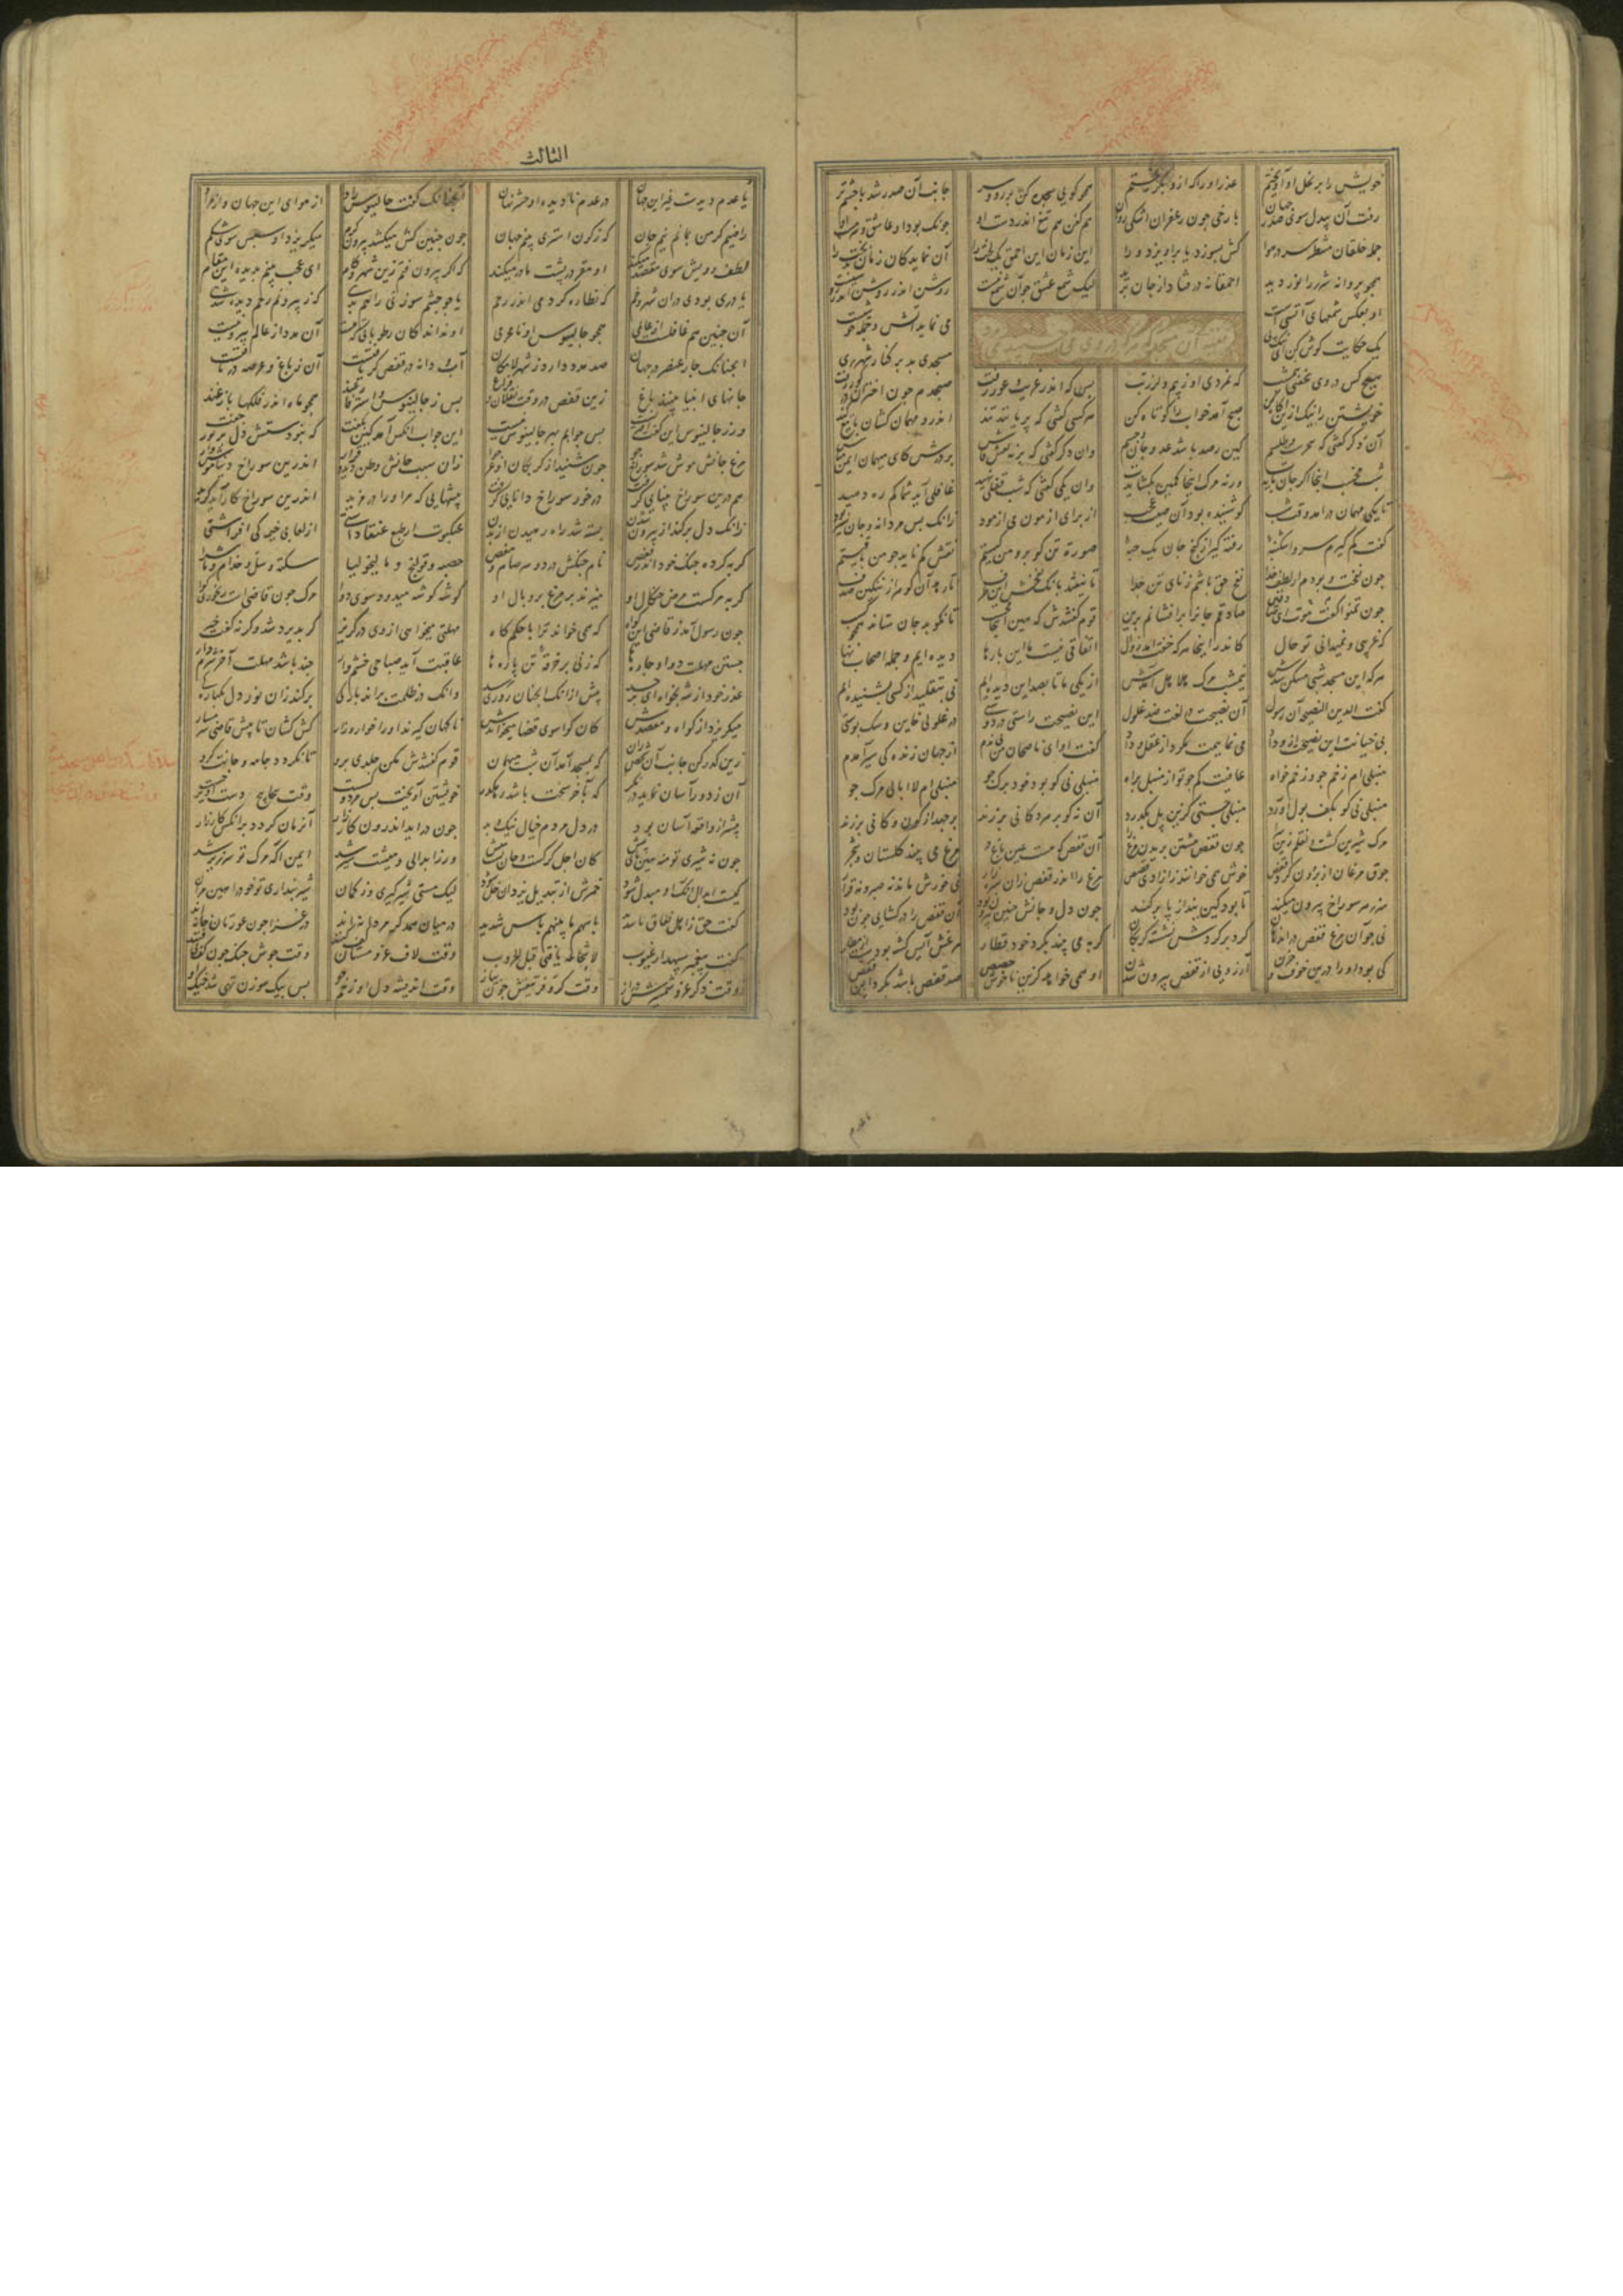 خویش را بر نخل او آویختم عذر او را که ازو بگریختم همچو گویی سجده کن بر رو و سر جانب آن صدر شد با چشم تر
رفت آن بیدل سوی صدر جهان با رخی جون زعفران اشکی روان هم کفن هم تیغ اندر دست او جونک بود او عاشق و سرمست او
جمله خلقان منتظر سر در هوا کش بسوزد یا براویزد ورا این زمان این احمق یک لخت را آن نماید کان زمان بدبخت را
همجو پروانه شرر را نور دید احمقانه در فتاد از جان برید لیک شمع عشق جون آن شمع نیست روشن اندر روشن اندر روشنیست
او بعکس شمعهای آتشی است می نماید آتش و جمله خوشیست
آن مسجد که در وی
یک حکایت گوش کن ای نیک پی مسجدی بد بر کنار شهر ری
هیچ کس در وی نخفتی شب که نمردی او ز بیم و لرز و تب بس که اندر غریب عور رفت صبحدم جون اختران در گور رفت
خویشتن را نیک ازین آگاه کن صبح آمد خواب را کوتاه کن هر کسی گفتی که پریانند تند اندرو مهمان کشان با تیغ کند
آن دگر گفتی که سحرست و طلسم کین رصد باشد عدو جان و جسم وان دگر گفتی که بر نه نقش فاش بر درش کای میهمان اینجا مباش
شب مخسب اینجا اگر جان بایدت ورنه مرگ اینجا کمین بگشایدت وان یکی گفتی که شب قفلی نهید غافلی آید شما کم ره دهید
تا یکی مهمان در آمد وقت شب کو شنیده بود آن صیت عجب از برای آزمون می ازمود زانک بس مردانه و جان سیر بود
گفت کم گیرم سر و اشکنبه رفته گیر از گنج جان یک حبه صورة تن گو برو من کیستم نقش کم ناید جو من باقیستم
جون نفخت بودم از لطف خدا نفخ حق باشم ز نای تن جدا تا نیفتد بانگ نفخش این طرف تا رهد آن گوهر از تنگین صدف
جون تمنوا گفت موت ای صادقین صادقم جانرا برافشانم برین قوم گفتندش که هین اینجا مخسب تا نکوبد جان ستانت همجو کسب
که غریبی و نمیدانی تو حال کاندر اینجا هر که خفت آمد زوال اتفاقی نیست ما این بارها دیده ایم و جمله اصحاب نهی
هر که این مسجد شبی مسکن شدش نیمشب مرگ هلاهل آمدش از یکی ما تا بصد این دیده ایم نی بتقلید از کسی بشنیده ایم
گفت الدین النصیحه آن رسول آن نصیحت در لغت ضد غلول این نصیحت راستی در دوستی در غلولی خاین و سک پوستی
بی خیانت این نصیحت از وداد می نماییمت مگرد از عقل و داد گفت او ای ناصحان من بی ندم از جهان زندگی سیر آمدم
منبلی ام زخم جو و زخم خواه عافیت کم جو تو از منبل براه منبلی نی کو بود خود برگ جو منبلی ام لاابالی مرگ جو
منبلی نی کو بکف پول آورد منبلی جستی کزین پل بگذرد آن نه کو بر هر دکانی بر زند بر جهد از کون و کانی بر زند
مرگ شیرین گشت و نقلم زین سرا جون قفص هشتن پریدن مرغ را آن قفص که هست عین باغ در مرغ می بیند گلستان و شجر
جوق مرغان از برون گرد قفص خوش همی خوانند ز ازادی قصص مرغ را اندر قفص زان سبزه زار نی خورش ماندست نی صبر و نه قرار
سر ز هر سوراخ بیرون میکند تا بود کین بند از پا بر کند جون دل و جانش جنین بیرون بود آن قفص را در گشایی جون بود
نی جو آن مرغ قفص در اندهان گرد بر گردش نشسته گربکان گربه می بیند بگرد خود قطار مرغش آیس گشته بودست از مطار
کی بود او را درین خوف و حزن آرزوی از قفص بیرون شدن او همی خواهد کزین ناخوش حصص صد قفص باشد بگرد این قفص
یا عدم
الثالث
یا عدم دیدست غیر این جهان در عدم نادیده او حشر نهان آنجنانک گفت جالینوس راد از هوای این جهان و از مراد
راضیم کز من بماند نیم جان که ز کون استری بینم جهان جون جنین کش میکشد بیرون کرم میگریزد او سپس سوی شکم
لطف رویش سوی مصدر میکند او مقر در پشت مادر میکند که اگر بیرون فتم زین شهر و کام ای عجب بینم بدیده این مقام
یا دری بودی دران شهر وخم که نظاره کردمی اندر رحم یا جو جشم سوزنی راهم بدی که ز بیرونم رحم دیده شدی
آن جنین هم غافلست از عالمی همجو جالینوس او نامحرمی او نداند کان رطوباتی که هست آن مدد از عالم بیرونیست
انجنانک جار عنصر در جهان صد مدد دارد ز شهر لامکان آب و دانه در قفص گر یافتست آن ز باغ و عرصه در تافتست
جانهای انبیا بینند باغ زین قفص در وقت نقلان و فراغ بس ز جالینوس و عالم فارغند همجو ماه اندر فلکها بازغند
ور ز جالینوس این گفت افتریست بس جوابم بهر جالینوس نیست این جواب انکس آمد کین بگفت که نبودستش دل پر نور جفت
مرغ جانش موش شد سوراخ جو جون شنید از گربکان او عرجوا زان سبب جانش وطن دید و قرار اندرین سوراخ دنیا موش وار
هم درین سوراخ بنایی گرفت درخور سوراخ دانایی گرفت پیشهایی که مر او را در مزید اندرین سوراخ کار آید گزید
زانک دل برکند از بیرون شدن بسته شد راه رهیدن از بدن عنکبوت ار طبع عنقا داشتی از لعابی خیمه کی افراشتی
گربه کرده جنگ خود اندر قفص نام جنگش درد و سرسام و مغص حصبه و قولنج و مالیخولیا سکته و سل و جذام و ماشرا
گربه مرگست و مرض جنگال او میزند بر مرغ و پر و بال او گوشه گوشه میدود سوی دوا مرگ جون قاضیست و رنجوری گوا
جون رسول آمد ز قاضی این گواه که همی خواند ترا با حکم گاه مهلتی میخواهی از وی در گریز گر پذیرد شد و گرنه گفت خیز
جستن مهلت دوا و جارها که زنی بر خرقه تن پاره ها عاقبت آید صباحی خشم وار جند باشد مهلت آخر شرم دار
عذر خود از شه بخواه ای پر حسد پیش از انک انجنان روزی رسد وانک در ظلمت براند بارگی برکند زان نور دل یکبارگی
میگریزد از گواه و مقصدش کان گوا سوی قضا میخواندش ناگهان گیرند او را خوار و زار کش کشان تا پیش قاضی شرمسار
زین گذر کن جانب آن شخص ران که بمسجد آمد آن شب میهمان قوم گفتندش مکن جلدی برو تا نگردد جامه و جانت گرو
آن ز دور آسان نماید به نگر که بآخر سخت باشد ره گذر خویشتن آویخت بس مرد و سکست وقت پیجاپیج دست آویز جست
پیشتر از واقعه آسان بود در دل مردم خیال نیک و بد جون در آید اندرون کارزار آنزمان گردد بر انکس کار زار
جون نه شیری تو منه هین پای پیش کان اجل گرگست و جان تست میش ور ز ابدالی و میشت شیر شد ایمن آ که مرگ تو سرزیر شد
کیست ابدال آنک او مبدل شود خمرش از تبدیل یزدان خل شود لیک مستی شیرگیری وز گمان شیر پنداری تو خود را هین مران
گفت حق ز اهل نفاق ناسدید باسهم ما بینهم باس شدید در میان همدگر مردانه اند در غزا جون عورتان خانه اند
گفت پیغمبر سپهدار غیوب لا شجاعه یا فتی قبل الحروب وقت لاف غزو مستان کف کنند وقت جوش جنگ جون کف بی فنند
وقت ذکر غزو شمشیرش دراز وقت کر و فر تیغش جون پیاز وقت اندیشه دل او زخم جو بس بیک سوزن تهی شد خیک او